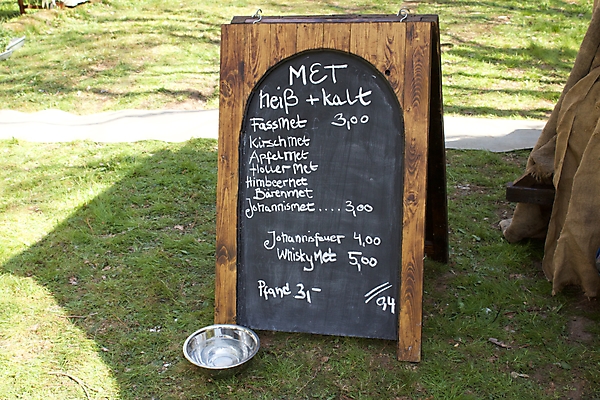 MET
heiß + kalt
Fassmet 3,00
Kirschmet
Apfelmet
Hollermet
Himbeermet
Bärenmet
Johannismet.... 3,00
Johannisfeuer 4,00
Whiskymet 5,00
Pfand 3,-
94